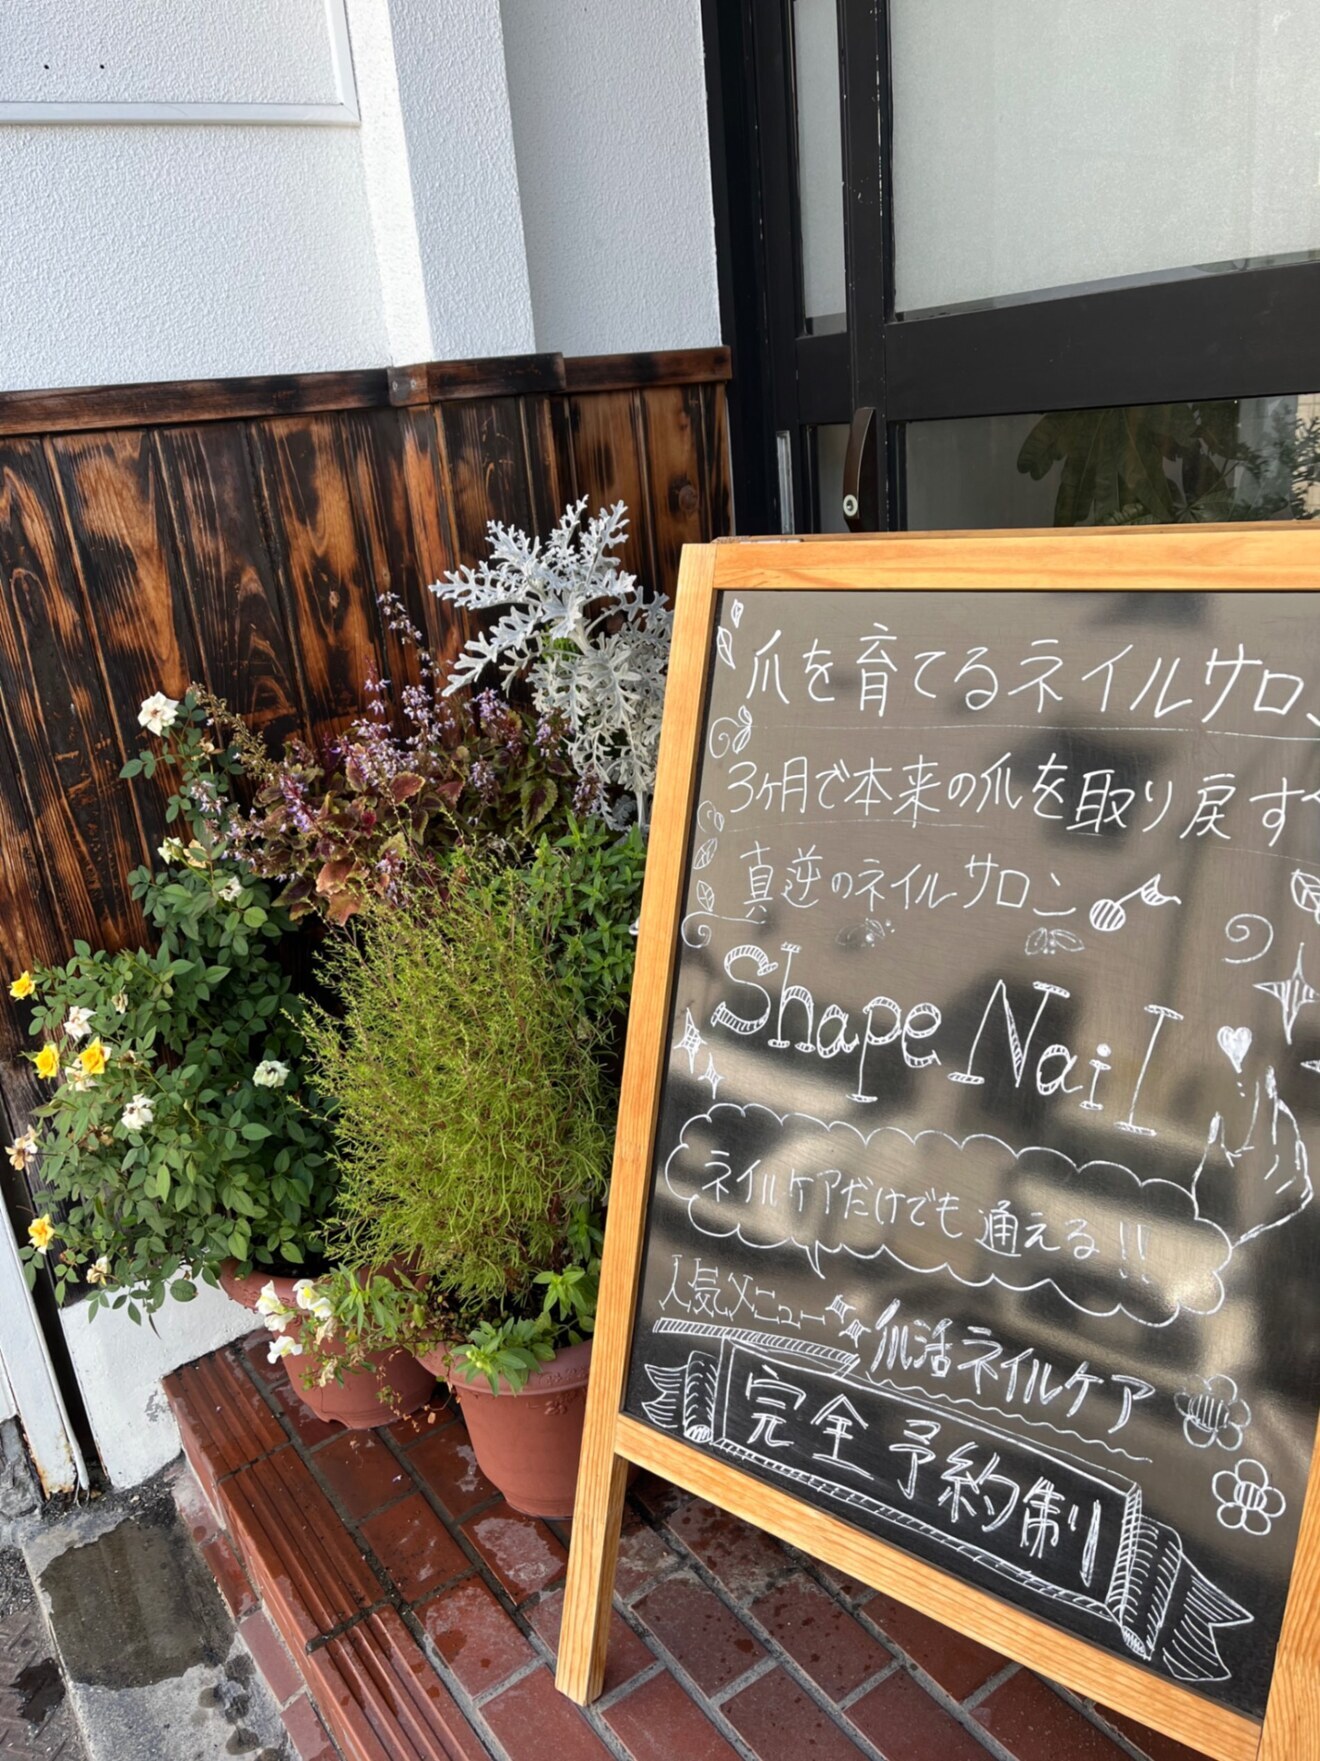 爪を育てるネイルサロン
3ヶ月で本来の爪を取り戻す
真逆のネイルサロン
Shape Nail
ネイルケアだけでも通える!!
人気メニュー
爪活ネイルケア
完全予約制